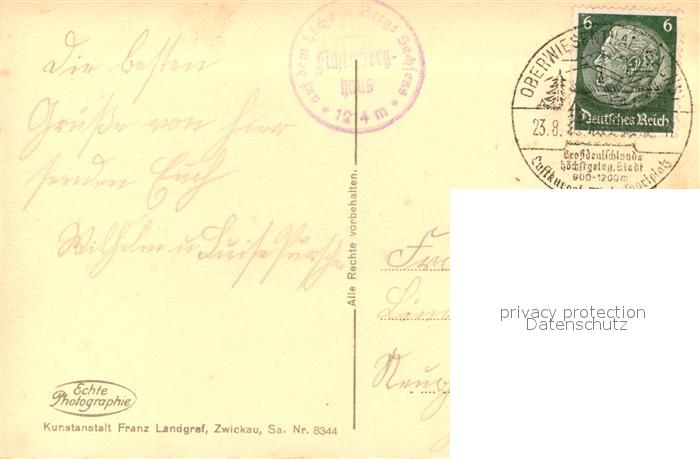 Die besten
Grüße von hier
senden Euch
Wilhelm u Luise
auf dem höchsten Berge Sachsens
Fichtelberg-
haus
* 1214 m *
6 6
Deutsches Reich
OBERWIESENTHAL
23.8.
Großdeutschlands
höchstgeleg. Stadt
900-1200m
Luftkurort
Alle Rechte vorbehalten.
Echte
Photographie
Kunstanstalt Franz Landgraf, Zwickau, Sa. Nr. 8344
privacy protection
Datenschutz